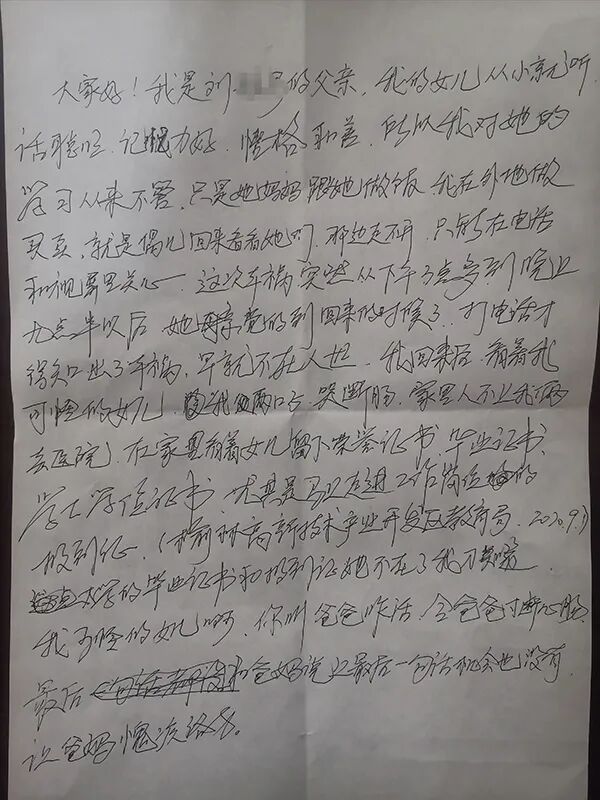 大家好！我是刘 号的父亲，我的女儿从小就听
话聪明，记忆力好，性格和善，所以我对她的
学习从来不管，只是她妈妈跟她做饭，我在外地做
买卖，就是偶儿回来看看她们，那边走不开，只能在电话
和视频里关心，这次车祸突然从下午3点多到晚上
九点半以后，她母亲觉的到回来的时候了，打电话才
得知出了车祸，早就不在人世，我回来后，看着我
可怜的女儿，我两口子哭断肠，家里人不让我俩
去医院，在家里看着女儿留下荣誉证书，毕业证书，
学士学位证书，尤其是马上走进工作岗位的
报到证，（榆林高新技术产业开发区教育局，2020.9.1）
大学的毕业证书和报到证她不在了我才
我可怜的女儿啊，你叫爸爸咋活，全爸爸 断心肠，
最后 和爸妈说上最后一句话机会也没有，
让爸妈愧疚终身。